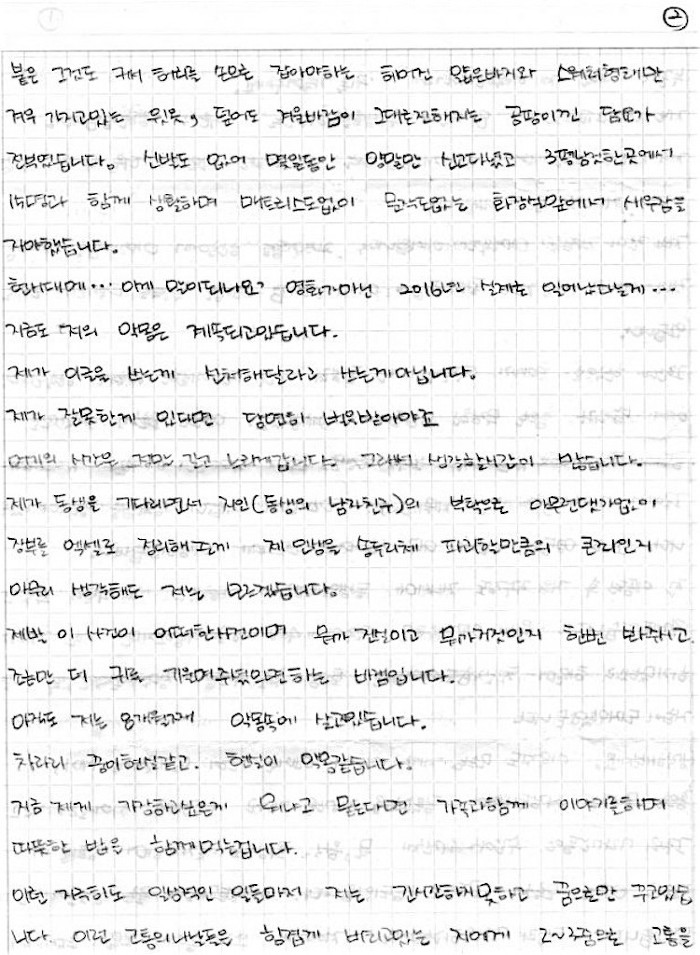 ②
붙은 그것도 커서 허리를 손으로 잡아야하는 하여건 얇은바지와 스웨터형태만
겨우 가지고있는 윗옷, 덮어도 겨울바람이 그대로전해지는 곰팡이낀 담요가
전부였습니다. 신발도 없어 몇일동안 양말만 신고다녔고 3평남짓한곳에서
15명과 함께 생활하며 매트리스도없이 문짝도없는 화장실앞에서 새우잠을
자야했습니다.
현시대에... 이게 말이되나요? 영화가아닌 2016년 실제로 일어났다는게...
지금도 저의 악몽은 계속되고있습니다.
제가 이글을 쓰는게 선처해달라고 쓰는게아닙니다.
제가 잘못한게 있다면 당연히 벌을받아야죠
여기의 시간은 정말 길고 느리게갑니다. 그래서 생각할시간이 많습니다.
제가 동생을 기다리면서 지인(동생의 남자친구)의 부탁으로 아무런댓가없이
장부를 엑셀로 정리해준게 제 인생을 송두리째 파괴할만큼의 큰죄인지
아무리 생각해도 저는 모르겠습니다.
제발 이 사건이 어떠한사건이며 무가 진실이고 무가거짓인지 한번 봐주시고
조금만 더 귀를 기울여주셨으면하는 바램입니다.
아직도 저는 8개월째 악몽속에 살고있습니다.
차라리 꿈이현실같고. 현실이 악몽같습니다.
저희 제게 가장하고싶은게 뭐냐고 묻는다면 가족과함께 이야기를하며
따뜻한 밥을 함께먹는겁니다.
이런 지극히도 일상적인 일들마저 저는 감사하지못하고 꿈으로만 꾸고있습
니다. 이런 고통의나날들을 힘겹게 버티고있는 저에게 2~3줄으로 고통을